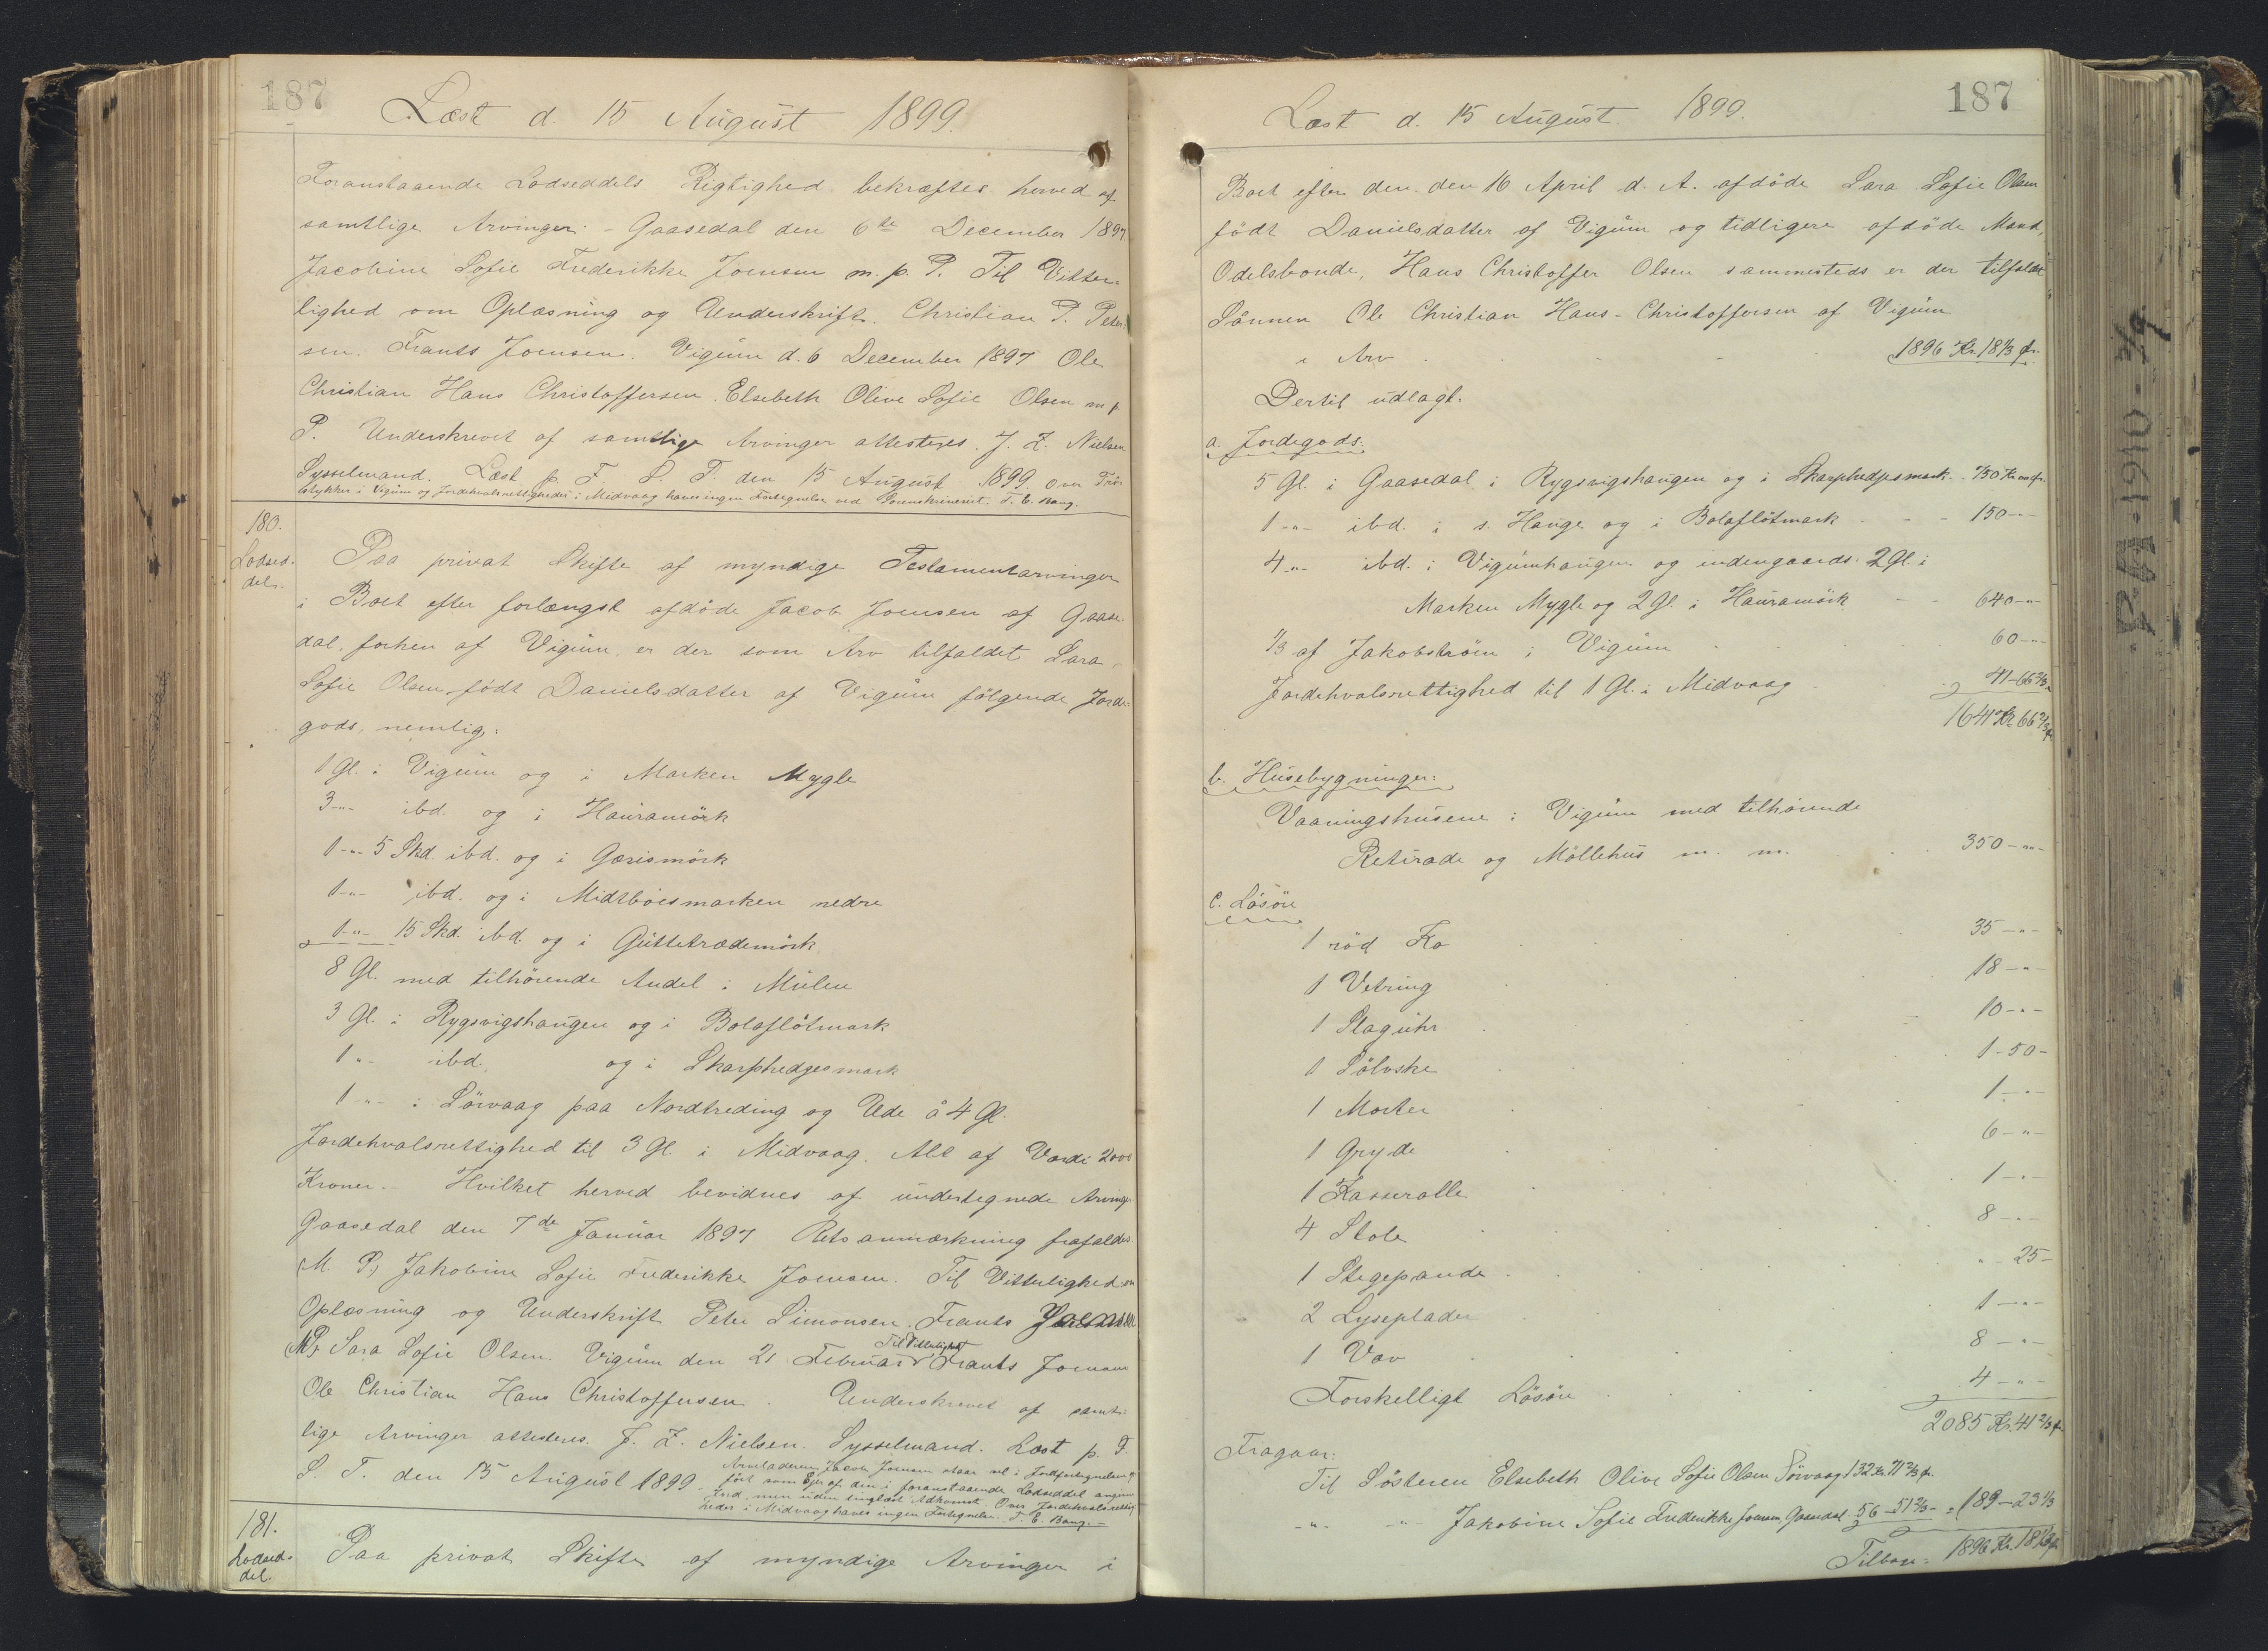 187
Læst d. 15 August 1899.
Foranstaaende Lodseddels Rigtighed bekræftes herved af
samtlige Arvinger. - Gaasedal den 6te December 1897
Jacobine Sofie Frederikke Joensen m. p. P. Til Vitter-
lighed om Oplæsning og Underskrift. Christian P. Peter-
sen. Frants Joensen. Vigum d. 6 December 1897 Ole
Christian Hans Christoffersen. Elsebeth Olive Sofie Olsen m p.
P. Underskrevet af samtlige Arvinger attesteres. J. Z. Nielsen
Sysselmand. Læst p. F. S. T. den 15 August 1899. Over Trö-
stykker i Vigum og Jordehvalsrettigheder i Midvaag haves ingen Fortegnelse ved Sorenskriveriet. F. E. Bang.
180.
Lodsed-
del.
Paa privat Skifte af myndige Testamentarvinger
i Boet efter forlængst afdöde Jacob Joensen af Gaase-
dal, forhen af Vigum, er der som Arv tilfaldet Sara
Sofie Olsen födt Danielsdatter af Vigum fölgende Jorde-
gods, nemlig:
1 Gl. i Vigum og i Marken Mygle
3 -"- ibd. og i Hauramörk
1 -"- 5 Skd. ibd. og i Gærismörk
1 -"- ibd. og i Midtböesmarken nedre
1 -"- 15 Skd. ibd. og i Guttetrædemörk
8 Gl. med tilhörende Andel i Mulen
3 Gl. i Rygsvigshaugen og i Bolaflötmark
1 -"- ibd. og i Skarphedgesmark
1 -"- i Sörvaag paa Nordtreding og Ude å 4 Gl.
Jordehvalsrettighed til 3 Gl. i Midvaag. Alt af Værdi 2000
Kroner. - Hvilket herved bevidnes af undertegnede Arvinger
Gaasedal den 7de Januar 1897 Rets anmærkning frafaldes
(M. P.) Jakobine Sofie Frederikke Joensen. Til Vitterlighed om
Oplæsning og Underskrift Peter Simonsen. Frants Joensen
(M P) Sara Sofie Olsen. Vigum den 21 Februar Til Vitterlighed Frants Joensen
Ole Christian Hans Christoffersen. Underskrevet af samt-
lige Arvinger attesteres. J. Z. Nielsen. Sysselmand. Læst p. F.
S. T. den 15 August 1899.
Arveladeren Jacob Joensen staar vel i Jordfortegnelsen op-
fört som Ejer af den i foranstaaende Lodseddel angivne
Jord, men uden tinglæst Adkomst. Over Jordehvalsrettig-
heder i Midvaag haves ingen Fortegnelse. F. E. Bang. -
181.
Lodsed-
del.
Paa privat Skifte af myndige Arvinger i
187
Læst d. 15 August 1899.
Boet efter den den 16 April d. A. afdöde Sara Sofie Olsen
födt Danielsdatter af Vigum og tidligere afdöde Mand,
Odelsbonde, Hans Christoffer Olsen sammesteds er der tilfaldet
Sönnen Ole Christian Hans-Christoffersen af Vigum
i Arv 1896 Kr. 18 1/3 Ør.
Dertil udlagt:
a. Jordegods:
5 Gl. i Gaasedal i Rygsvigshaugen og i Skarphedgesmark. 750 Kr. 00 Ør.
1 -"- ibd. i s. Hauge og i Bolaflötmark 150 -"-
4 -"- ibd. i Vigumhaugen og indengaards. 2 Gl. i
Marken Mygle og 2 Gl. i Hauramörk 640 -"-
1/3 af Jakobströen i Vigum 60 -"-
Jordehvalsrettighed til 1 Gl. i Midvaag 41 - 66 2/3 -
1641 Kr. 66 2/3 Ør
b. Husebygninger:
Vaaningshusene i Vigum med tilhörende
Retirade og Möllehus m. m. 350 -"-
c. Lösöre
1 röd Ko 35 -"-
1 Vetring 18 -"-
1 Slaguhr 10 -"-
1 Sölvske 1 - 50 -
1 Morter 1 -"-
1 Gryde 6 -"-
1 Kasserolle 1 -"-
4 Stole 8 -"-
1 Stegepande " 25 -
2 Lyseplader 1 -"-
1 Væv 8 -"-
Forskelligt Lösöre 4 -"-
2085 Kr. 41 2/3 Ør
Fragaar:
Til Sösteren Elsebeth Olive Sofie Olsen Sörvaag 132 Kr. 71 2/3 Ør.
-"- -"- Jakobine Sofie Frederikke Joensen Gaasedal. 56 - 51 2/3 - = 189 - 23 1/3
Tilbage: 1896 Kr. 18 1/3 Ør